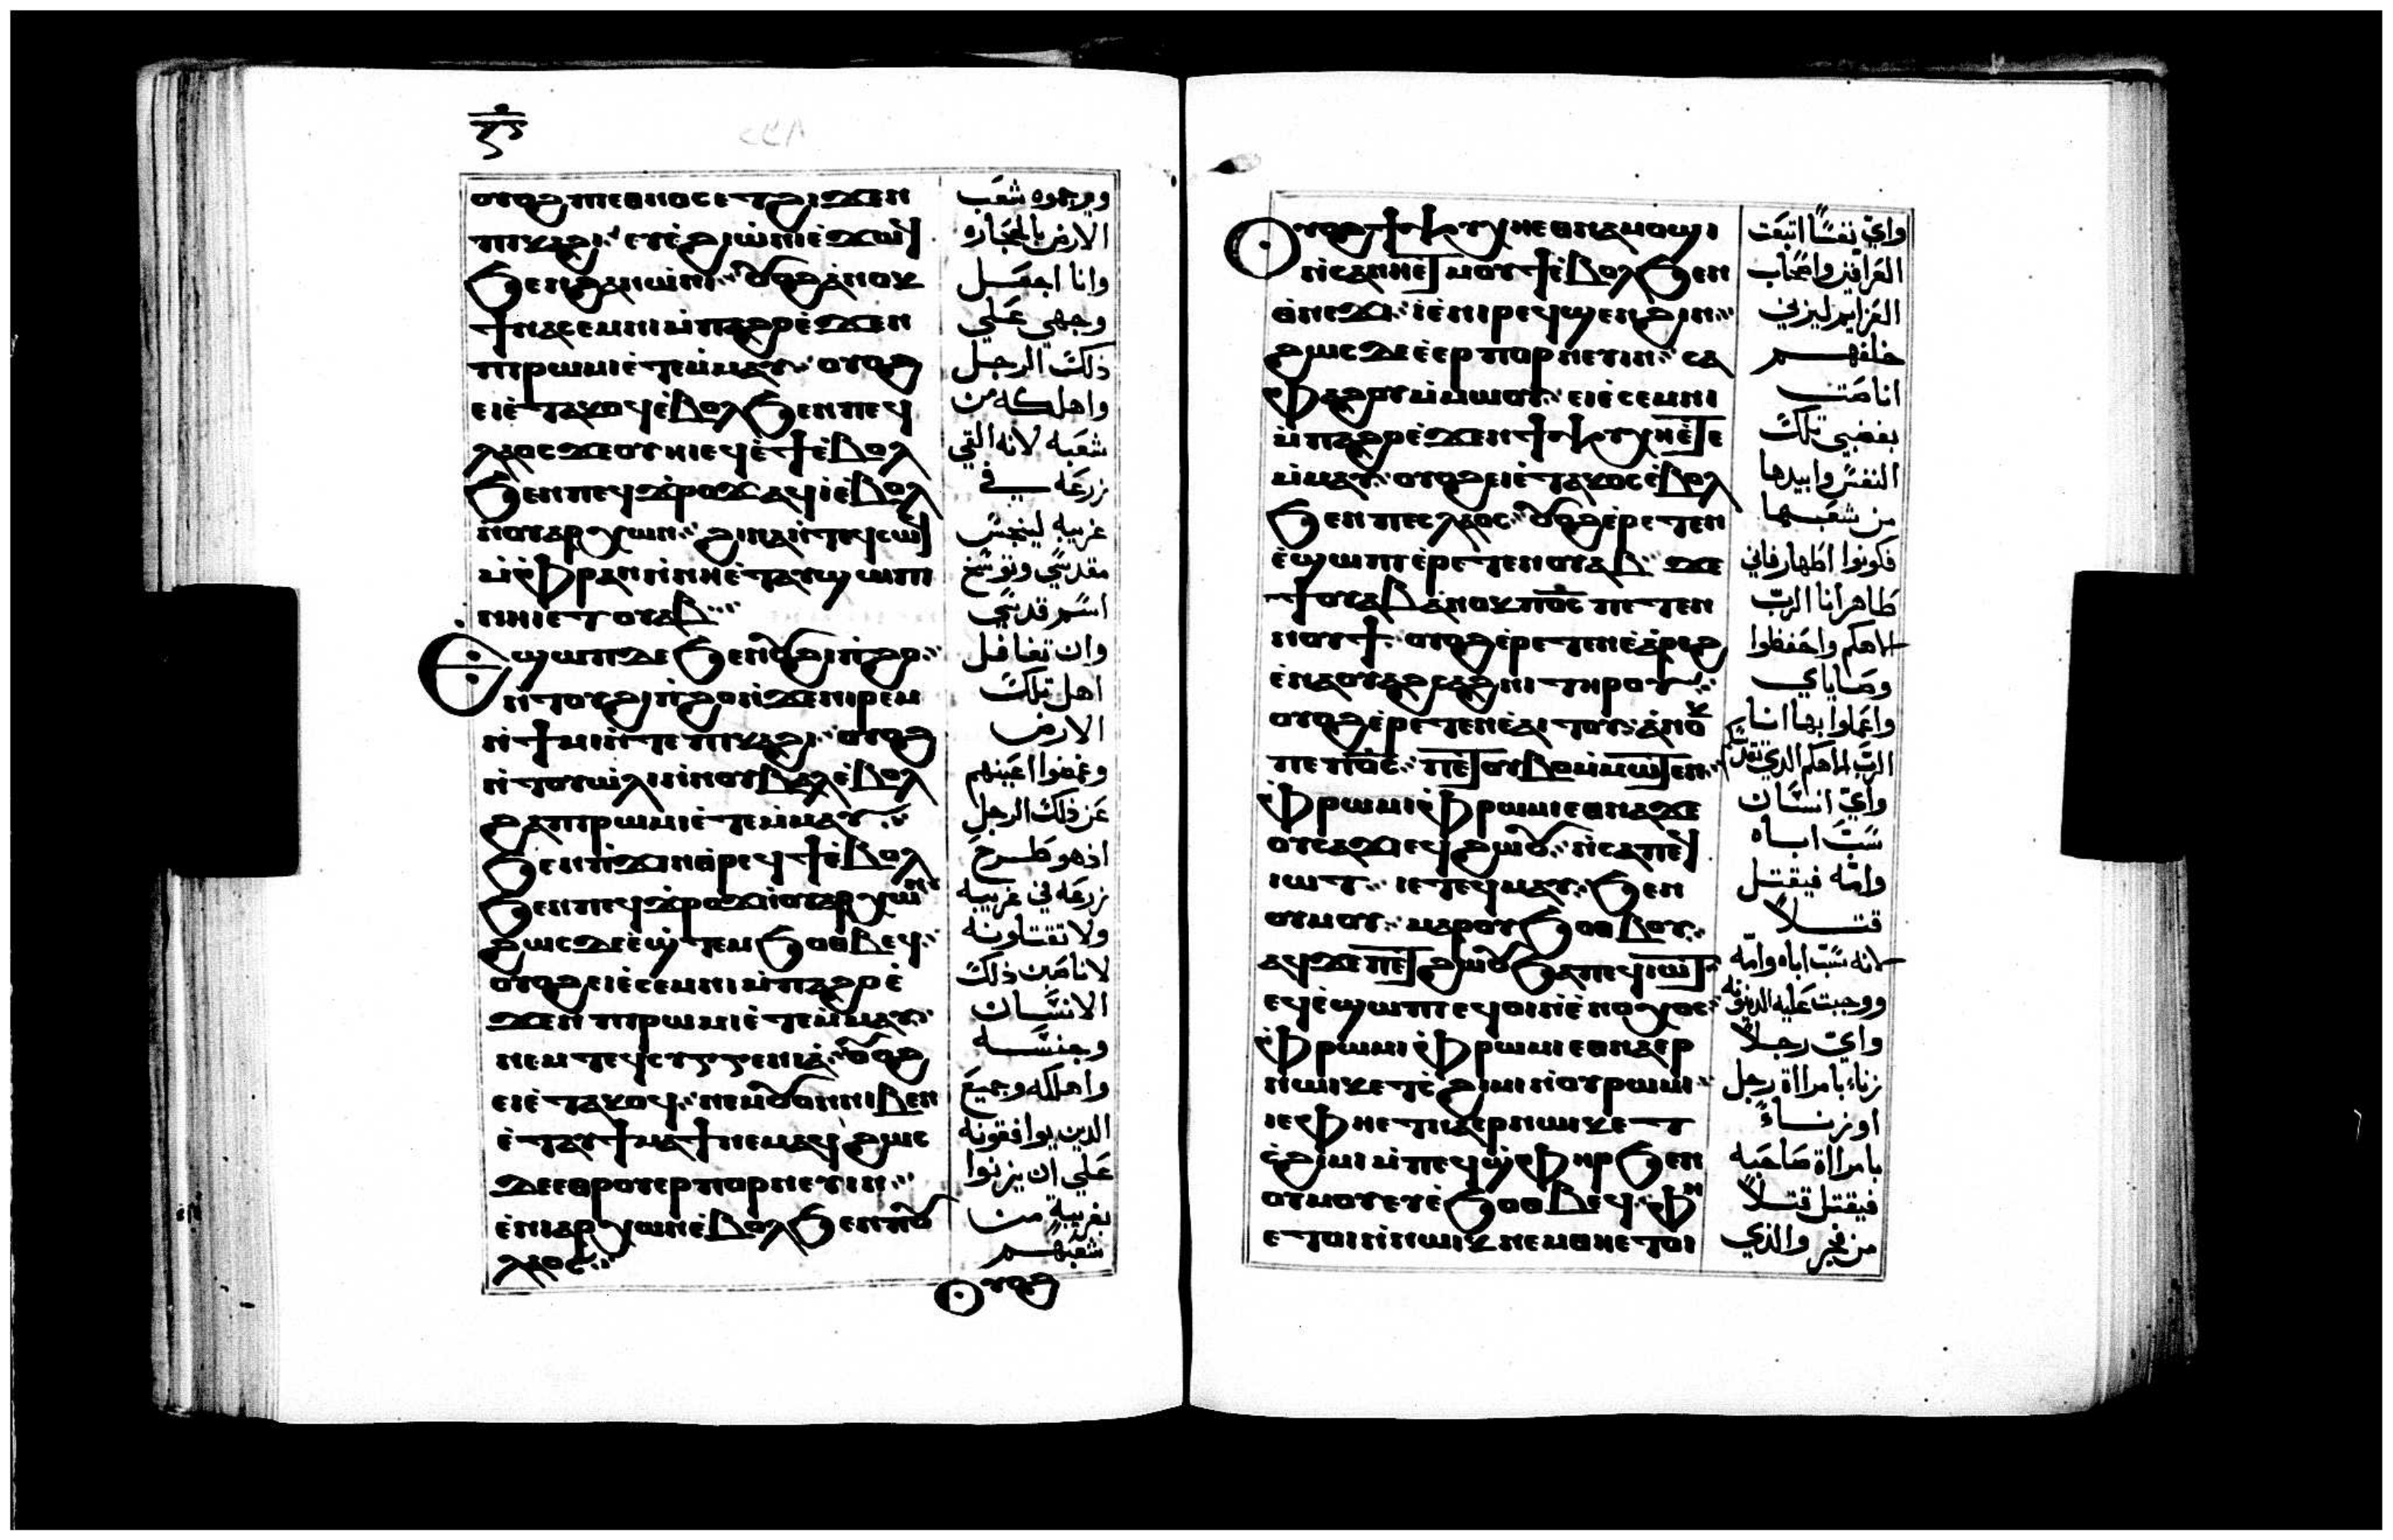 ⲟⲩⲟϩ ⲡⲉⲑⲛⲟⲥ ⲉⲧϩⲓϫⲉⲛ
ⲡⲓⲕⲁϩⲓ ⲉⲩⲉ̀ϩⲓⲱ̀ⲛⲓ ⲉ̀ϫⲱϥ
ϧⲉⲛ ϩⲁⲛⲱ̀ⲛⲓ ⲟⲩⲟϩ ⲁ̀ⲛⲟⲕ
ϯⲛⲁⲥⲉⲙⲛⲓ ⲙ̀ⲡⲁϩⲣⲉ̀ϫⲉⲛ
ⲡⲓⲣⲱⲙⲓ ⲉ̀ⲧⲉⲙ̀ⲙⲁⲩ ⲟⲩⲟϩ
ⲉⲓⲉ̀ⲧⲁⲕⲟϥ ⲉ̀ⲃⲟⲗ ϧⲉⲛ ⲡⲉϥ
ⲗⲁⲟⲥ ϫⲉ ⲟⲩⲏⲓ ⲉϥⲉ̀ϯ ⲉ̀ⲃⲟⲗ
ϧⲉⲛ ⲡⲉϥϫ̀ⲣⲟϫ ⲁϥⲓ̀ ⲉ̀ⲃⲟⲗ
ⲛ̀ⲟⲩⲁⲣⲭⲱⲛ ϩⲓⲛⲁ ⲛ̀ⲧⲉϥⲥⲱϥ
ⲙ̀ⲫⲣⲁⲛ ⲛ̀ⲛⲏⲉ̀ⲧⲁⲩϣⲱⲡⲓ
ⲛⲏⲓ ⲉⲧⲟⲩⲁⲃ
Ⲉϣⲱⲡ ⲇⲉ ϧⲉⲛ ⲟⲩϩⲓⲛ̀ϩⲟ
ⲛ̀ⲧⲟⲩϩⲓⲛ̀ϩⲟ ⲛ̀ϫⲉ ⲛⲓⲣⲉⲙ
ⲛ̀ϯⲙⲓ ⲛ̀ⲧⲉ ⲡⲓⲕⲁϩⲓ ⲟⲩⲟϩ
ⲛ̀ⲧⲟⲩⲱ̀ⲗⲓ ⲛ̀ⲛⲟⲩⲃⲁⲗ ⲉ̀ⲃⲟⲗ
ϩⲁ ⲡⲓⲣⲱⲙⲓ ⲉ̀ⲧⲉⲙ̀ⲙⲁⲩ
ϧⲉⲛ ⲡ̀ϫⲓⲛⲑ̀ⲣⲉϥϯ ⲉ̀ⲃⲟⲗ
ϧⲉⲛ ⲡⲉϥϫ̀ⲣⲟϫ ⲛ̀ⲟⲩⲁⲣⲭⲱⲛ
ϩⲱⲥ ⲇⲉ ⲉ̀ϣ̀ⲧⲉⲙϧⲟⲑⲃⲉϥ
ⲟⲩⲟϩ ⲉⲓⲉ̀ⲥⲉⲙⲛⲓ ⲙ̀ⲡⲁϩⲣⲉ̀
ϫⲉⲛ ⲡⲓⲣⲱⲙⲓ ⲉ̀ⲧⲉⲙ̀ⲙⲁⲩ
ⲛⲉⲙ ⲧⲉϥⲥⲩⲅⲅⲉⲛⲓⲁ̀ ⲟⲩⲟϩ
ⲉⲓⲉ̀ⲧⲁⲕⲟϥ ⲛⲉⲙ ⲟⲩⲟⲛ ⲛⲓⲃⲉⲛ
ⲉ̀ⲧⲁⲩϯⲙⲁϯ ⲛⲉⲙⲁϥ ϩⲱⲥ
ⲇⲉ ⲉⲑⲣⲟⲩⲉⲣⲡⲟⲣⲛⲉⲩⲓⲛ
ⲉ̀ⲛⲓⲁⲣⲭⲱⲛ ⲉ̀ⲃⲟⲗ ϧⲉⲛ ⲡⲟⲩ
ⲗⲁⲟⲥ
ⲟⲩⲟϩ
ويرجموه شعب
الارض بالحجاره
وانا اجعل
وجهي علي
ذلك الرجل
واهلكه من
شعبه لانه القي
زرعه في
غريبه لينجس
مقدسي وتوسخ
اسم قدسي
وان تغافل
اهل تلك
الارض
وغمضوا اعينهم
عن ذلك الرجل
اذ هو طرح
زرعه في غريبه
ولا تقتلونه
لانا مين ذلك
الانسان
وجنسه
واهلكه وجميع
الدين يوافقونه
علي ان يزنوا
بغريبة من
شعبهم
Ⲟⲩⲟϩ ϯⲯⲩⲭⲏ ⲉⲑⲛⲁⲙⲟϣⲓ
ⲛ̀ⲥⲁ ⲛⲏⲉⲧⲙⲟⲩϯ ⲉ̀ⲃⲟⲗ ϧⲉⲛ
ⲑ̀ⲛⲉϫⲓ ⲓⲉ̀ ⲛⲓⲣⲉϥϣⲉⲛϩⲓⲛ
ϩⲱⲥ ⲇⲉ ⲉ̀ⲉⲣⲡⲟⲣⲛⲉⲩⲓⲛ ⲥⲁ
ⲫⲁϩⲟⲩ ⲙ̀ⲙⲱⲟⲩ ⲉⲓⲉ̀ⲥⲉⲙⲛⲓ
ⲙ̀ⲡⲁϩⲣⲉ̀ϫⲉⲛ ϯⲯⲩⲭⲏ ⲉ̀ⲧⲉ
ⲙ̀ⲙⲁⲩ ⲟⲩⲟϩ ⲉⲓⲉ̀ⲧⲁⲕⲟⲥ ⲉ̀ⲃⲟⲗ
ϧⲉⲛ ⲡⲉⲥⲗⲁⲟⲥ ⲟⲩⲟϩ ⲉ̀ⲣⲉⲧⲉⲛ
ⲉ̀ϣⲱⲡⲓ ⲉ̀ⲣⲉⲧⲉⲛⲟⲩⲁⲃ ϫⲉ
ϯⲟⲩⲁⲃ ⲁ̀ⲛⲟⲕ ⲡⲟ̅ⲥ̅ ⲡⲉⲧⲉⲛ
ⲛⲟⲩϯ ⲟⲩⲟϩ ⲉ̀ⲣⲉⲧⲉⲛⲉ̀ⲁ̀ⲣⲉϩ
ⲉ̀ⲛⲁⲟⲩⲁϩⲥⲁϩⲛⲓ ⲧⲏⲣⲟⲩ
ⲟⲩⲟϩ ⲉ̀ⲣⲉⲧⲉⲛⲉ̀ⲁⲓⲧⲟⲩ ⲁ̀ⲛⲟⲕ
ⲡⲉ ⲡⲟ̅ⲥ̅ ⲡⲉⲧⲟⲩⲃⲟ ⲙ̀ⲙⲱⲧⲉⲛ
ⲫ̀ⲣⲱⲙⲓ ⲫ̀ⲣⲱⲙⲓ ⲉⲑⲛⲁϫⲉ
ⲟⲩⲥⲁϫⲓ ⲉϥϩⲱⲟⲩ ⲛ̀ⲥⲁ ⲡⲉϥ
ⲓⲱⲧ ⲓⲉ ⲧⲉϥⲙⲁⲩ ϧⲉⲛ
ⲟⲩⲙⲟⲩ ⲙⲁⲣⲟⲩϧⲟⲑⲃⲟⲩ
ⲁϥϫⲉ ⲡⲉⲧϩⲱⲟⲩ ϧⲁ ⲡⲉϥⲓⲱⲧ
ⲉϥⲉ̀ϣⲱⲡⲓ ⲉϥⲟⲓ ⲛ̀ⲉ̀ⲛⲟⲭⲟⲥ
ⲫ̀ⲣⲱⲙⲓ ⲫ̀ⲣⲱⲙⲓ ⲉⲑⲛⲁⲉⲣ
ⲛⲱⲓⲕ ⲉⲧⲥ̀ϩⲓⲙⲓ ⲛ̀ⲟⲩⲣⲱⲙⲓ
ⲓⲉ ⲫⲏ ⲉⲧⲛⲁⲉⲣⲛⲱⲓⲕ ⲉⲧ
ⲥ̀ϩⲓⲙⲓ ⲙ̀ⲡⲉϥϣ̀ⲫⲏⲣ ϧⲉⲛ
ⲟⲩⲙⲟⲩ ⲉⲩⲉ̀ϧⲟⲑⲃⲉϥ ⲫⲏ
ⲉⲧⲟⲓ ⲛ̀ⲛⲱⲓⲕ ⲛⲉⲙ ⲑⲏ ⲉⲧⲟⲓ
واي نفسًا اتبعت
العرافين واصحاب
العزايم ليزني
خلفهم
انا مين
بغضبي تلك
النفس وابيدها
من شعبها
فكونوا اطهار فاني
طاهر انا الرب
الاهكم واحفظوا
وصاياي
واعملوا بها انا
الرب الاهكم الدي يقدسكم
واي انسان
سب اباه
وامه فيقتل
قتلاً
لانه سب اباه وامه
ووجبت عليه الدينونه
واي رجلاً
زناء بامراة رجل
او زناءً
بامراة صاحبه
فيقتل قتلاً
من فجر والذي